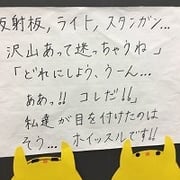 反射板,ライト,スタンガン…
沢山あって迷っちゃうね」
「どれにしよう、うーん…
ああっ!! コレだ!!」
私達が目を付けたのは
そう…ホイッスルです!!